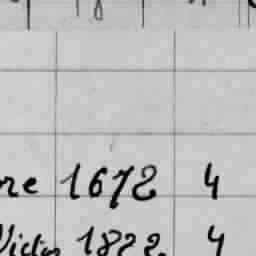 re 1672 4
Victor 1822. 4